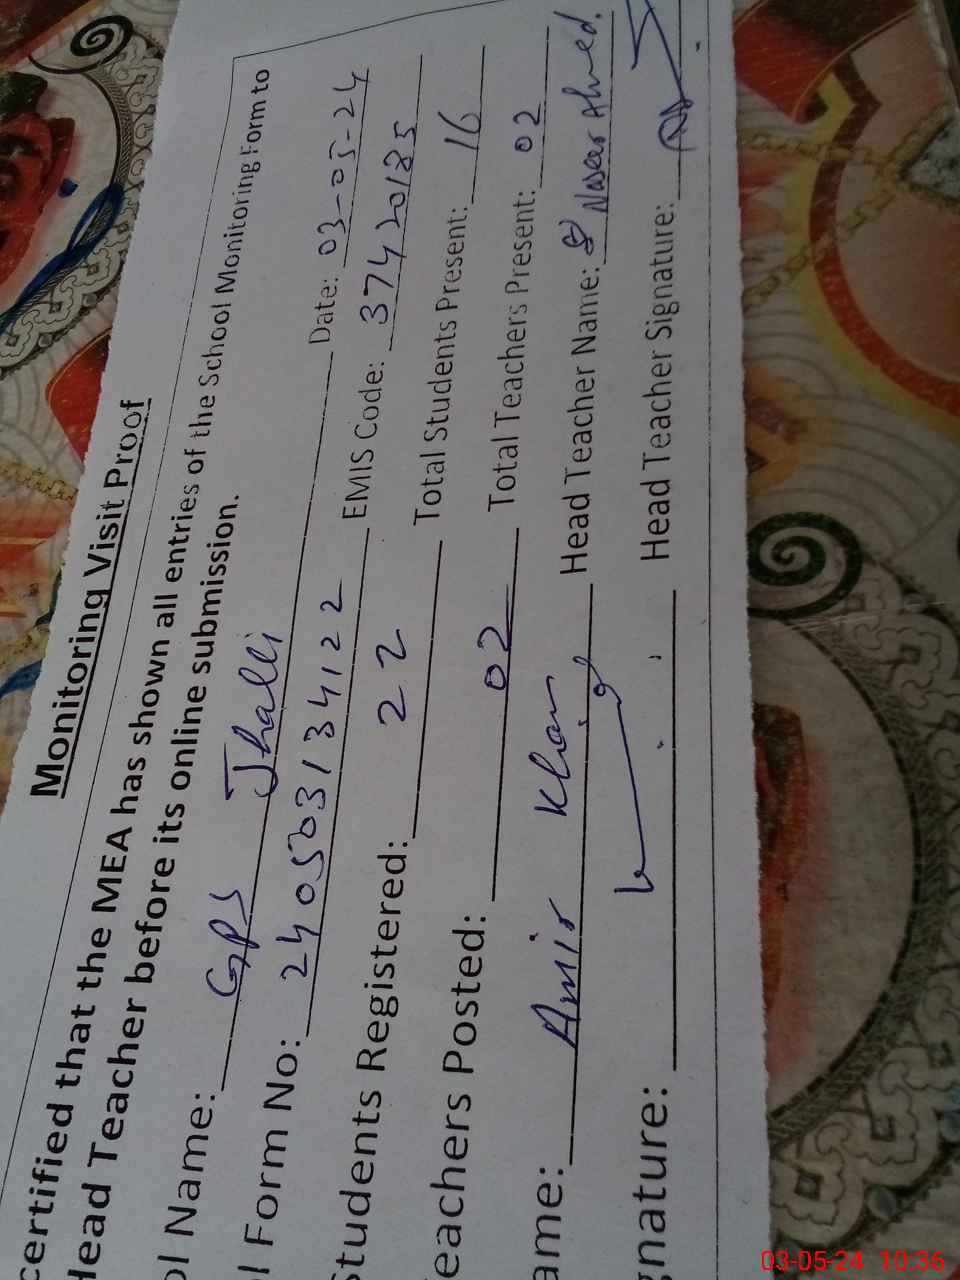 Monitoring Visit Proof
certified that the MEA has shown all entries of the School Monitoring Form to
Head Teacher before its online submission.
ol Name: GPS Jhalli Date: 03-05-24
l Form No: 240503134122 EMIS Code: 37420185
Students Registered: 22 Total Students Present: 16
eachers Posted: 02 Total Teachers Present: 02
ame: Amir Khan Head Teacher Name: Naseer Ahmed.
gnature: Head Teacher Signature:
03-05-24 10:36